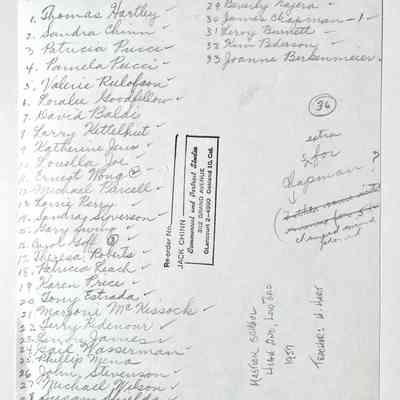 1. Thomas Hartley ✓
2. Sandra Chinn ✓
3 Patricia Pucci ✓
4. Pamela Pucci ✓
5. Valerie Rulofson ✓
6. Loralee Goodfellow ✓
7. David Baldi
8 Larry Kettelhut ✓
9 Katherine
10 Louella Joe
11 Ernest Wong
12 Michael Parcell
13 Lorrie Perry
14 Sandra Stevenson ✓
15 Gary
16 Goff
17 Theresa Roberts
18 Patricia Reach ✓
19 Karen Price ✓
20 Tony Estrada ✓
21 Marjorie McKissock ✓
22 Jerry Ridenour ✓
23 James ✓
24 Wasserman
25 Phillip Mena
26 John Stevenson ✓
27 Michael Wilson ✓
28 Susan
29 Beverly
30 James Chapman - 1 - ✓
31 Leroy Burnett ✓
32 Kim Pederson ✓
33 Joanne Berkenmeier
36
extra
for
Chapman ?
Reorder No.
JACK CHINN
Commercial and Portrait Studio
GRAND AVENUE
GLencourt 2-4990 Oakland 10, Cal.
School
High 2nd, Low 3rd
1957
Teacher: H. Hart